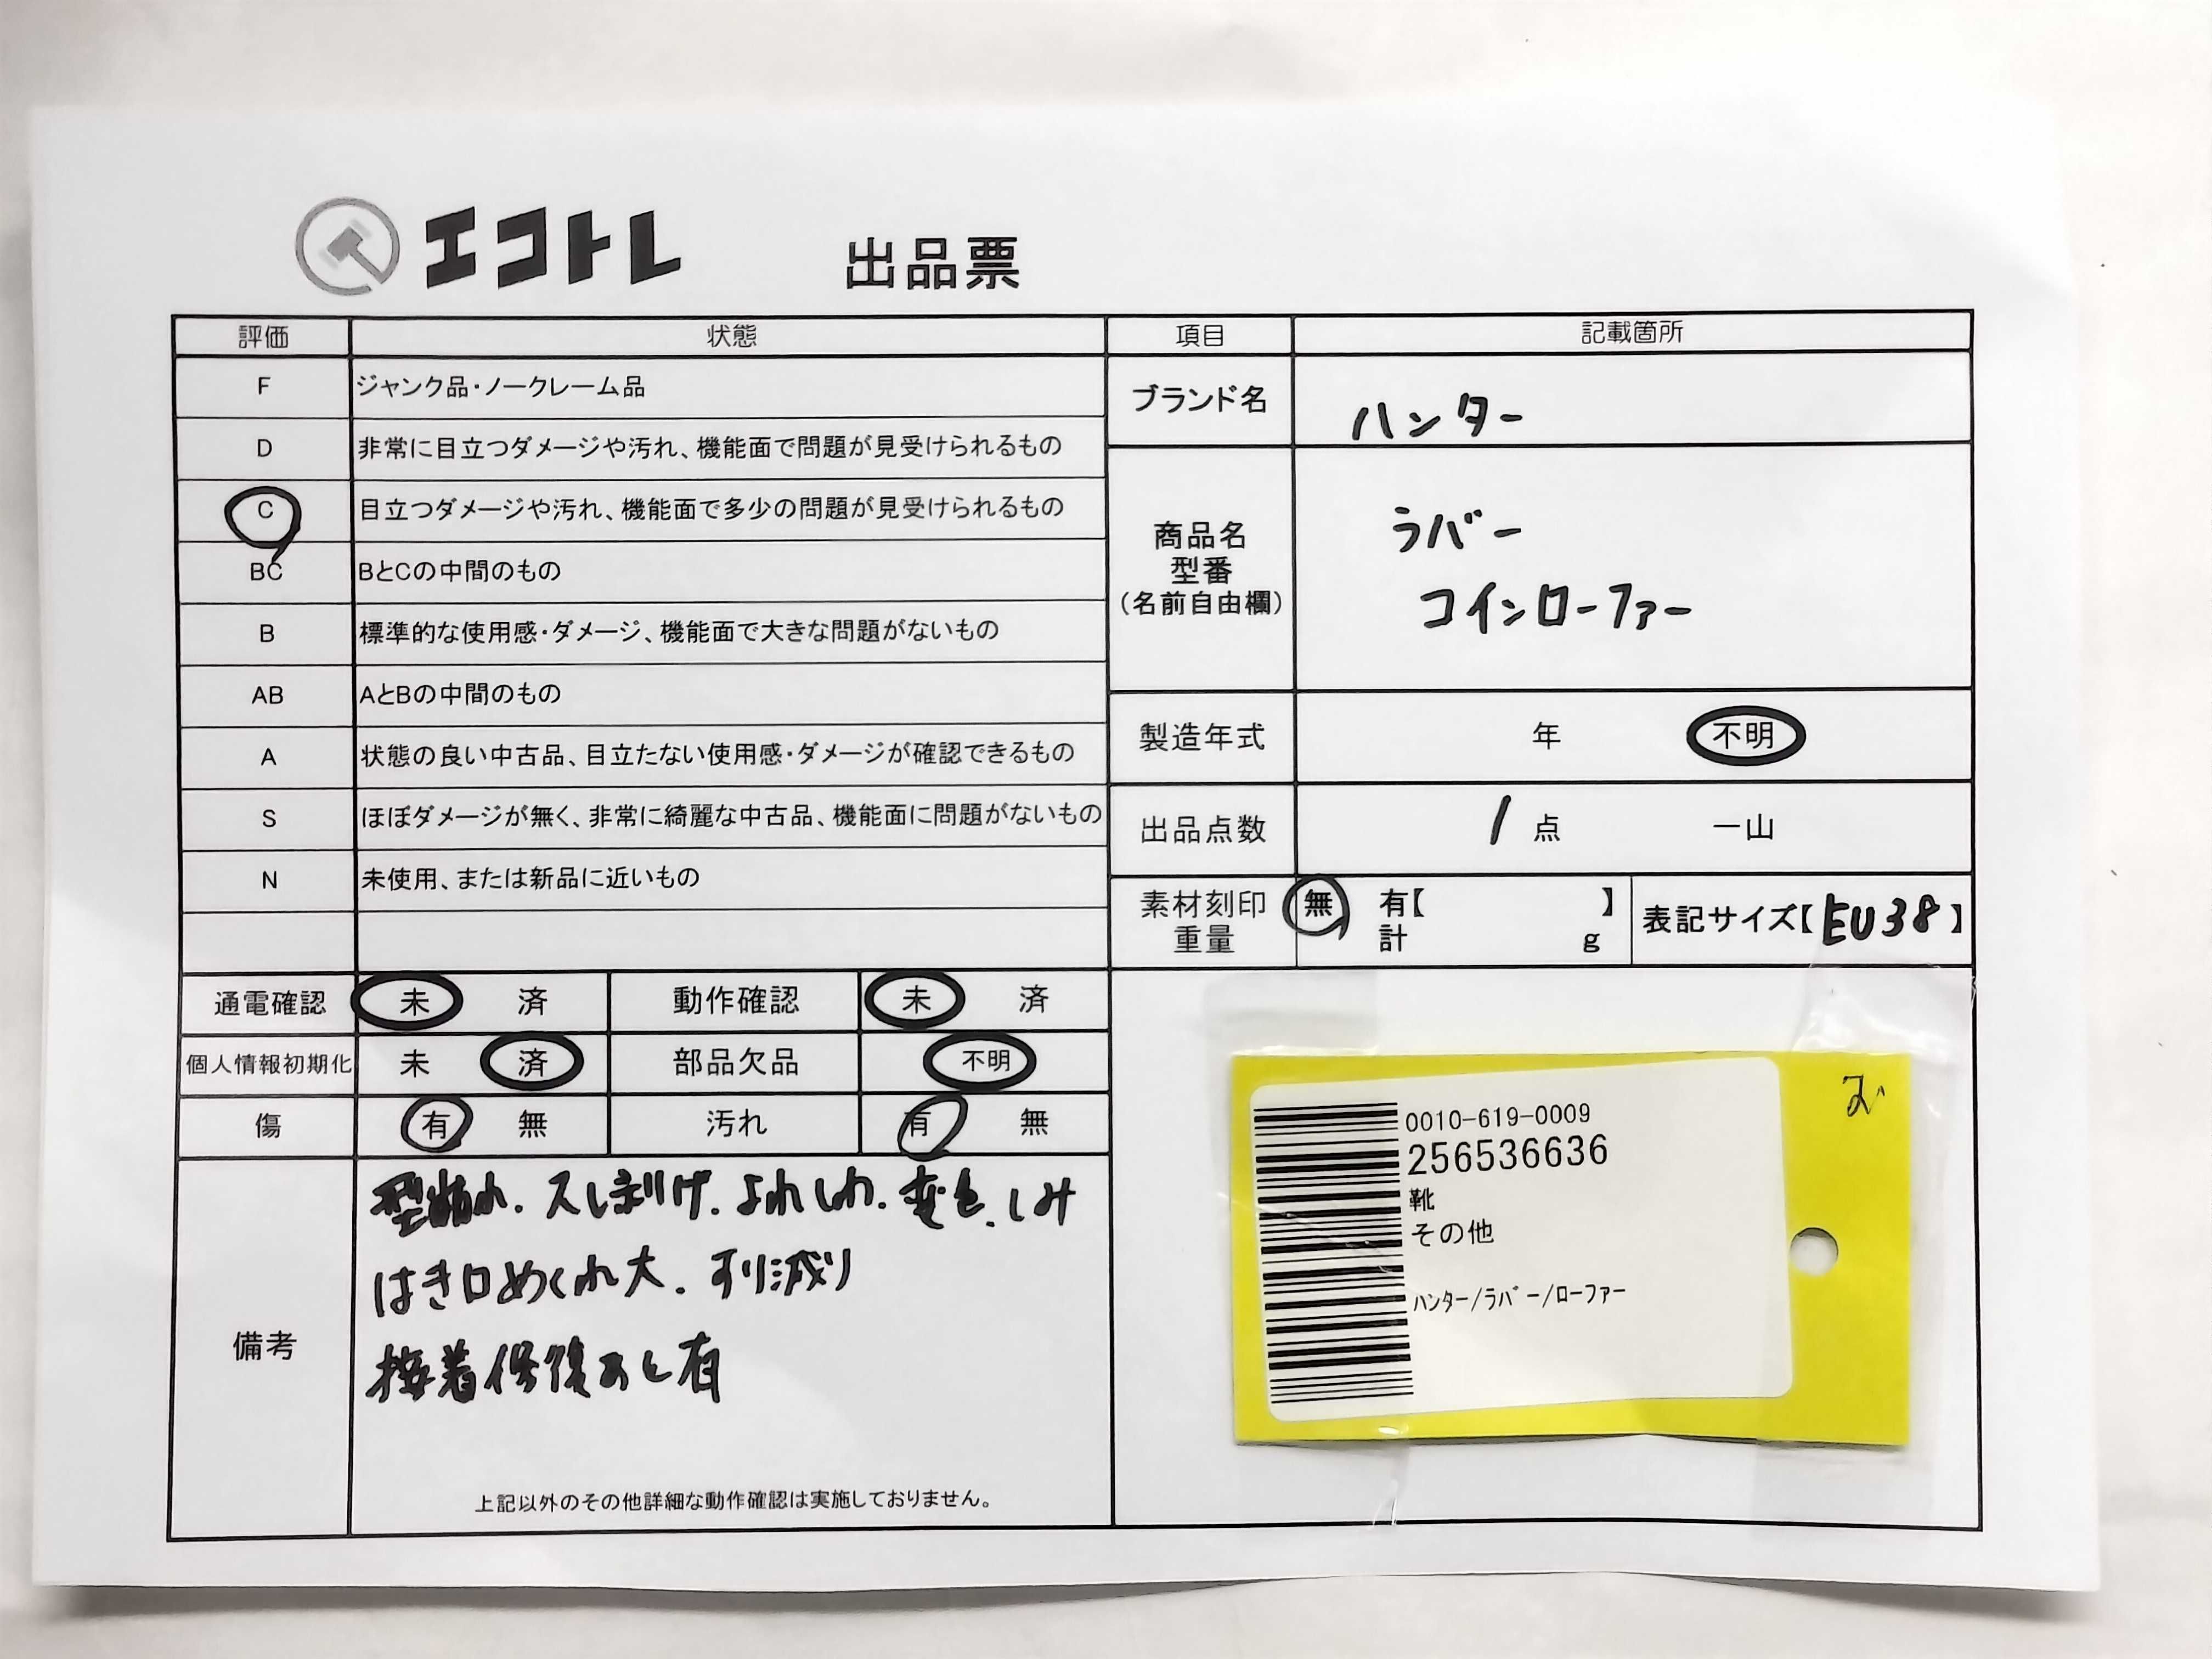 エコトレ 出品票
評価 状態
F ジャンク品・ノークレーム品
D 非常に目立つダメージや汚れ、機能面で問題が見受けられるもの
C 目立つダメージや汚れ、機能面で多少の問題が見受けられるもの
BC BとCの中間のもの
B 標準的な使用感・ダメージ、機能面で大きな問題がないもの
AB AとBの中間のもの
A 状態の良い中古品、目立たない使用感・ダメージが確認できるもの
S ほぼダメージが無く、非常に綺麗な中古品、機能面に問題がないもの
N 未使用、または新品に近いもの
通電確認 未 済 動作確認 未 済
個人情報初期化 未 済 部品欠品 不明
傷 有 無 汚れ 有 無
備考
型崩れ.スレ剥げ.よれしわ.変色.しみ
はき口めくれ大.すり減り
接着修復あと有
上記以外のその他詳細な動作確認は実施しておりません。
項目 記載箇所
ブランド名 ハンター
商品名
型番
(名前自由欄)
ラバー
コインローファー
製造年式 年 不明
出品点数 1点 一山
素材刻印 無 有【 】
重量 計 g
表記サイズ【EU38】
0010-619-0009
256536636
靴
その他
ﾊﾝﾀｰ/ﾗﾊﾞｰ/ﾛｰﾌｧｰ